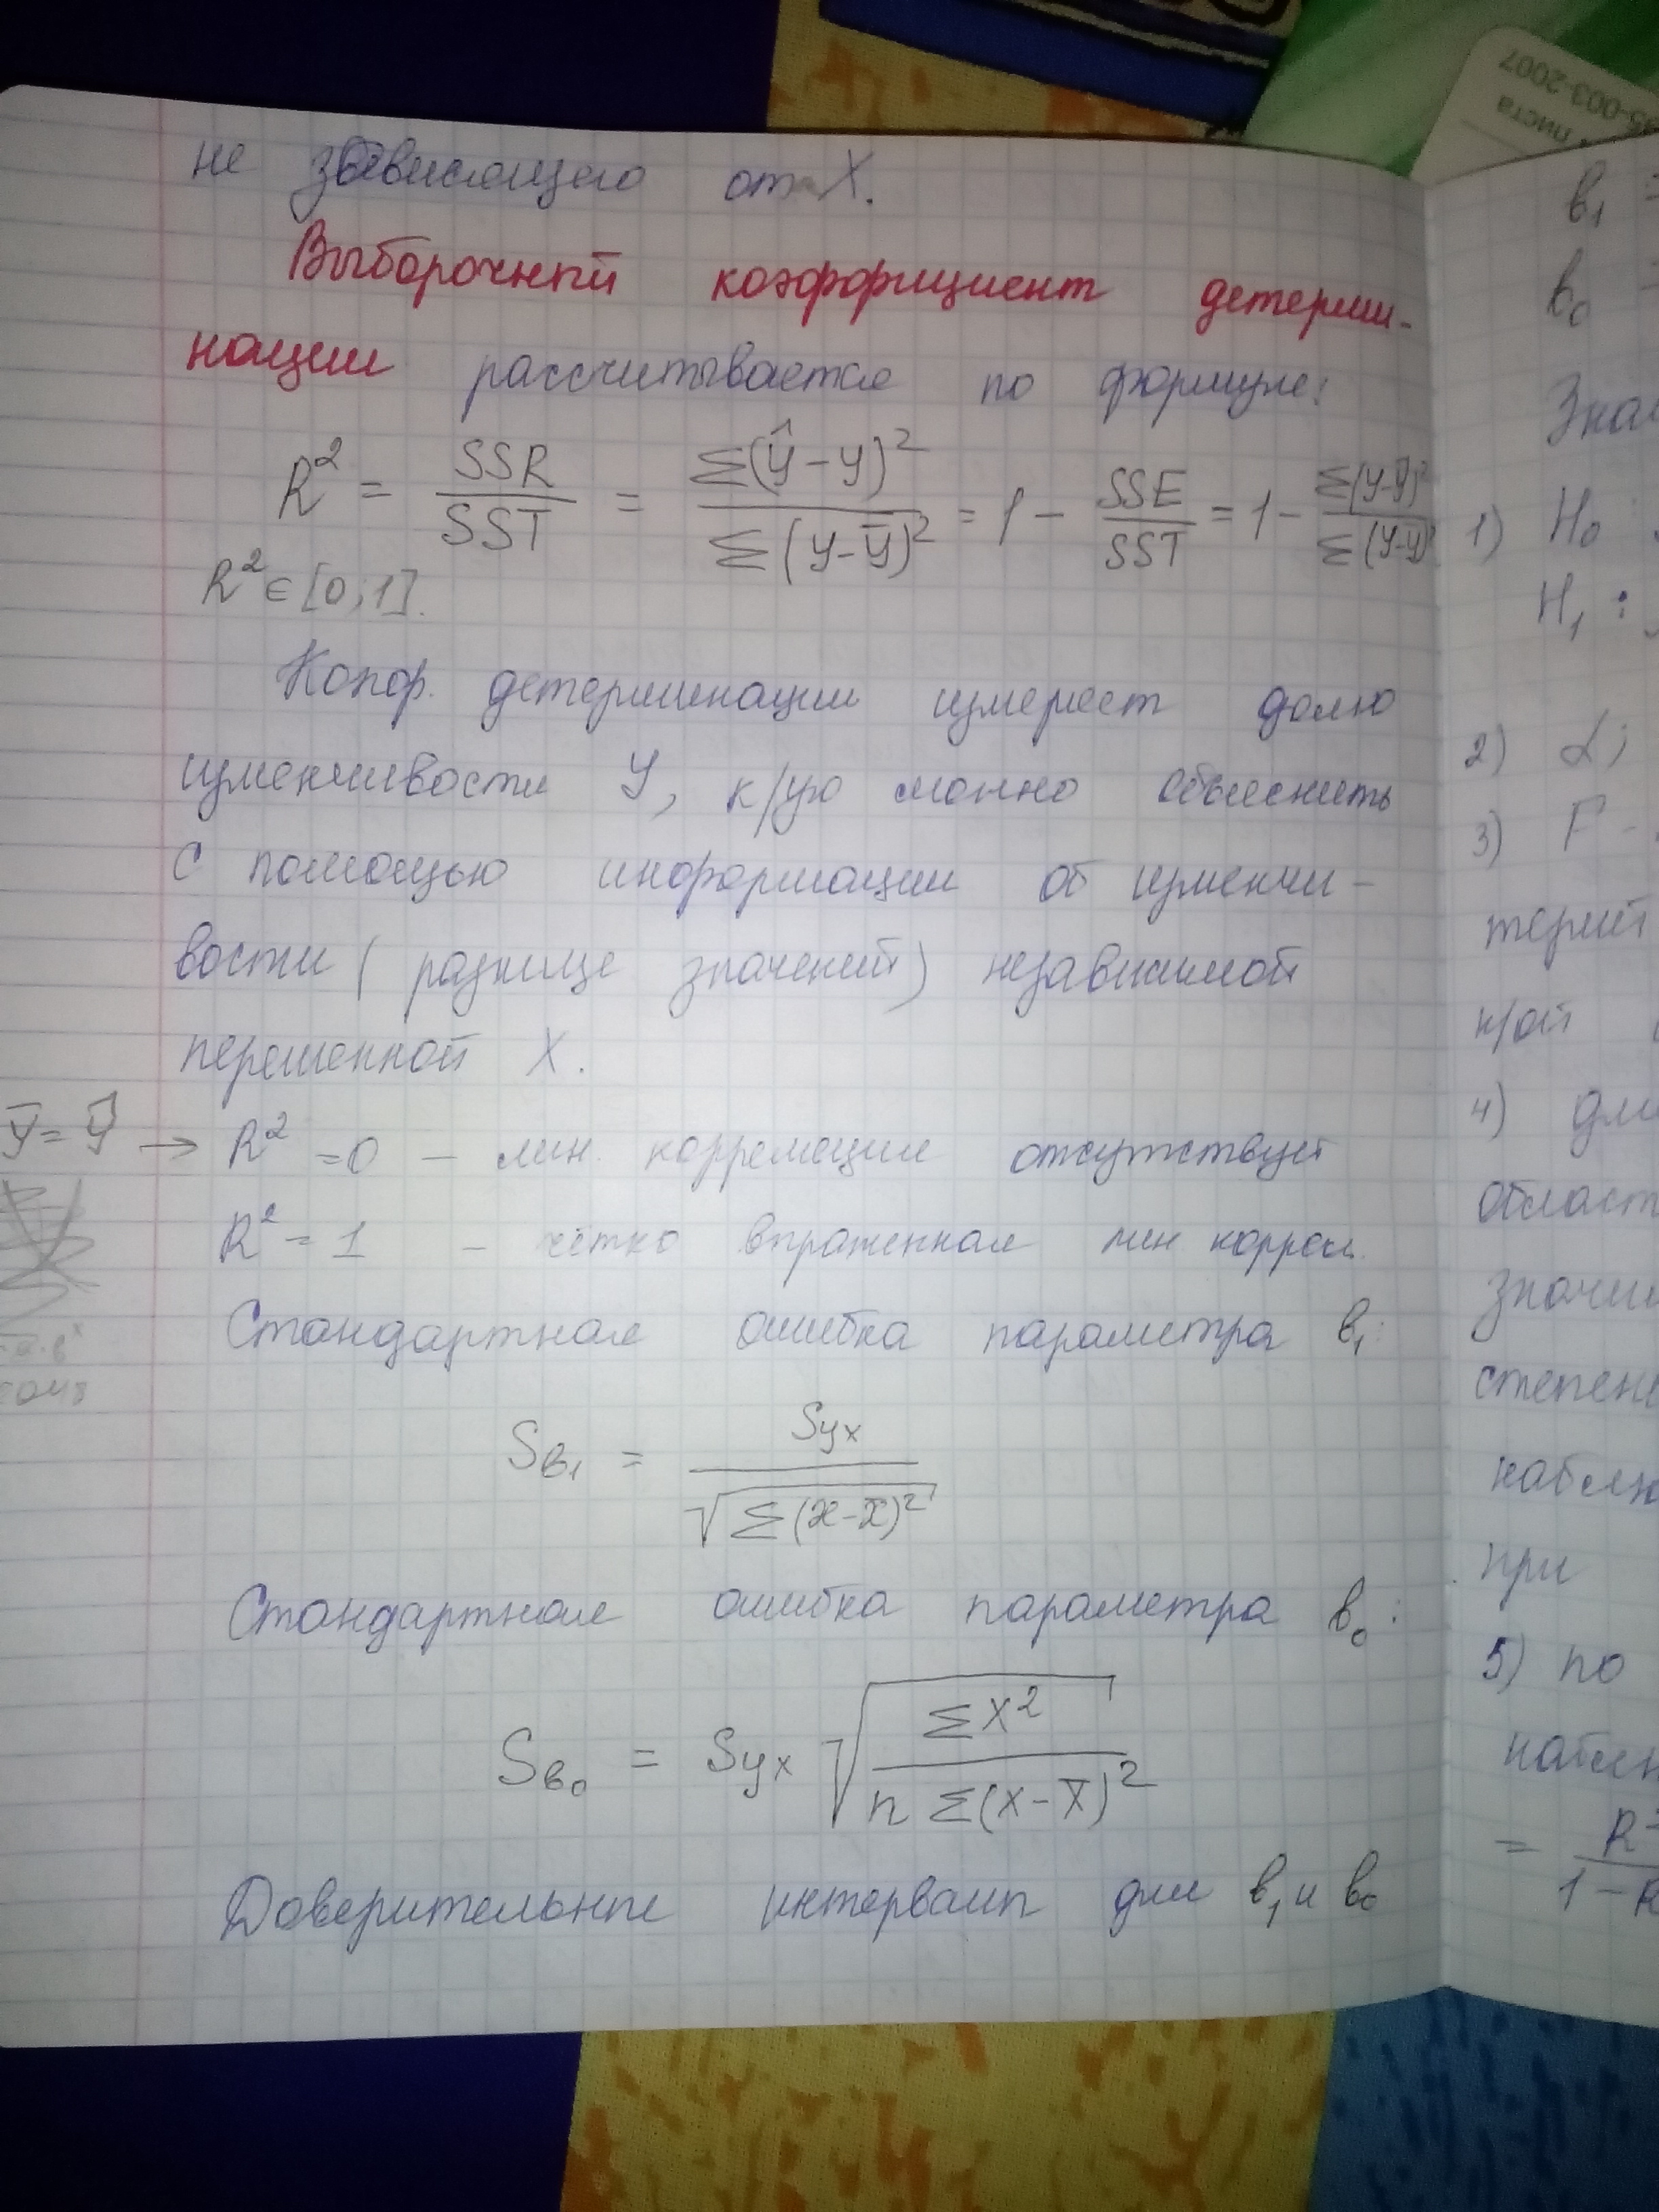 не зависящего от X.
Выборочный коэффициент детерми-
нации рассчитывается по формуле:
R² = SSR/SST = Σ(ŷ-y)²/Σ(y-ȳ)² = 1 - SSE/SST = 1 - Σ(y-ŷ)²/Σ(y-ȳ)²
R² ∈ [0;1].
Коэф. детерминации измеряет долю
изменчивости Y, к/ую можно объяснить
с помощью информации об изменчи-
вости (разнице значений) независимой
переменной X.
→ R² = 0 - лин. корреляция отсутствует
R² = 1 - чётко выраженная лин коррел.
Стандартная ошибка параметра b₁:
Sb₁ = Syx/√Σ(x-x̄)²
Стандартная ошибка параметра b₀:
Sb₀ = Syx √(Σx²/(n Σ(x-x̄)²))
Доверительные интервалы для b₁ и b₀
b₁
b₀
1) H₀
H₁ :
2) α;
3) F -
терий
к/ой
4)
област
степен
наблю
при
5) по
R²
1 - R
5-003-2007
листа